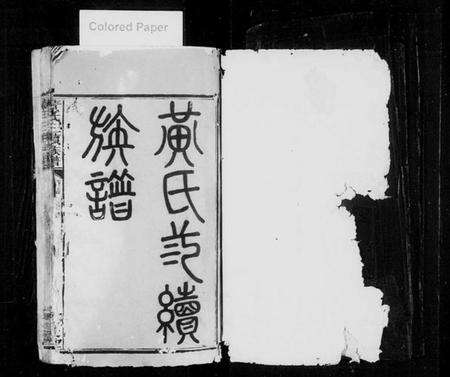 Colored Paper
黃氏 續
族譜